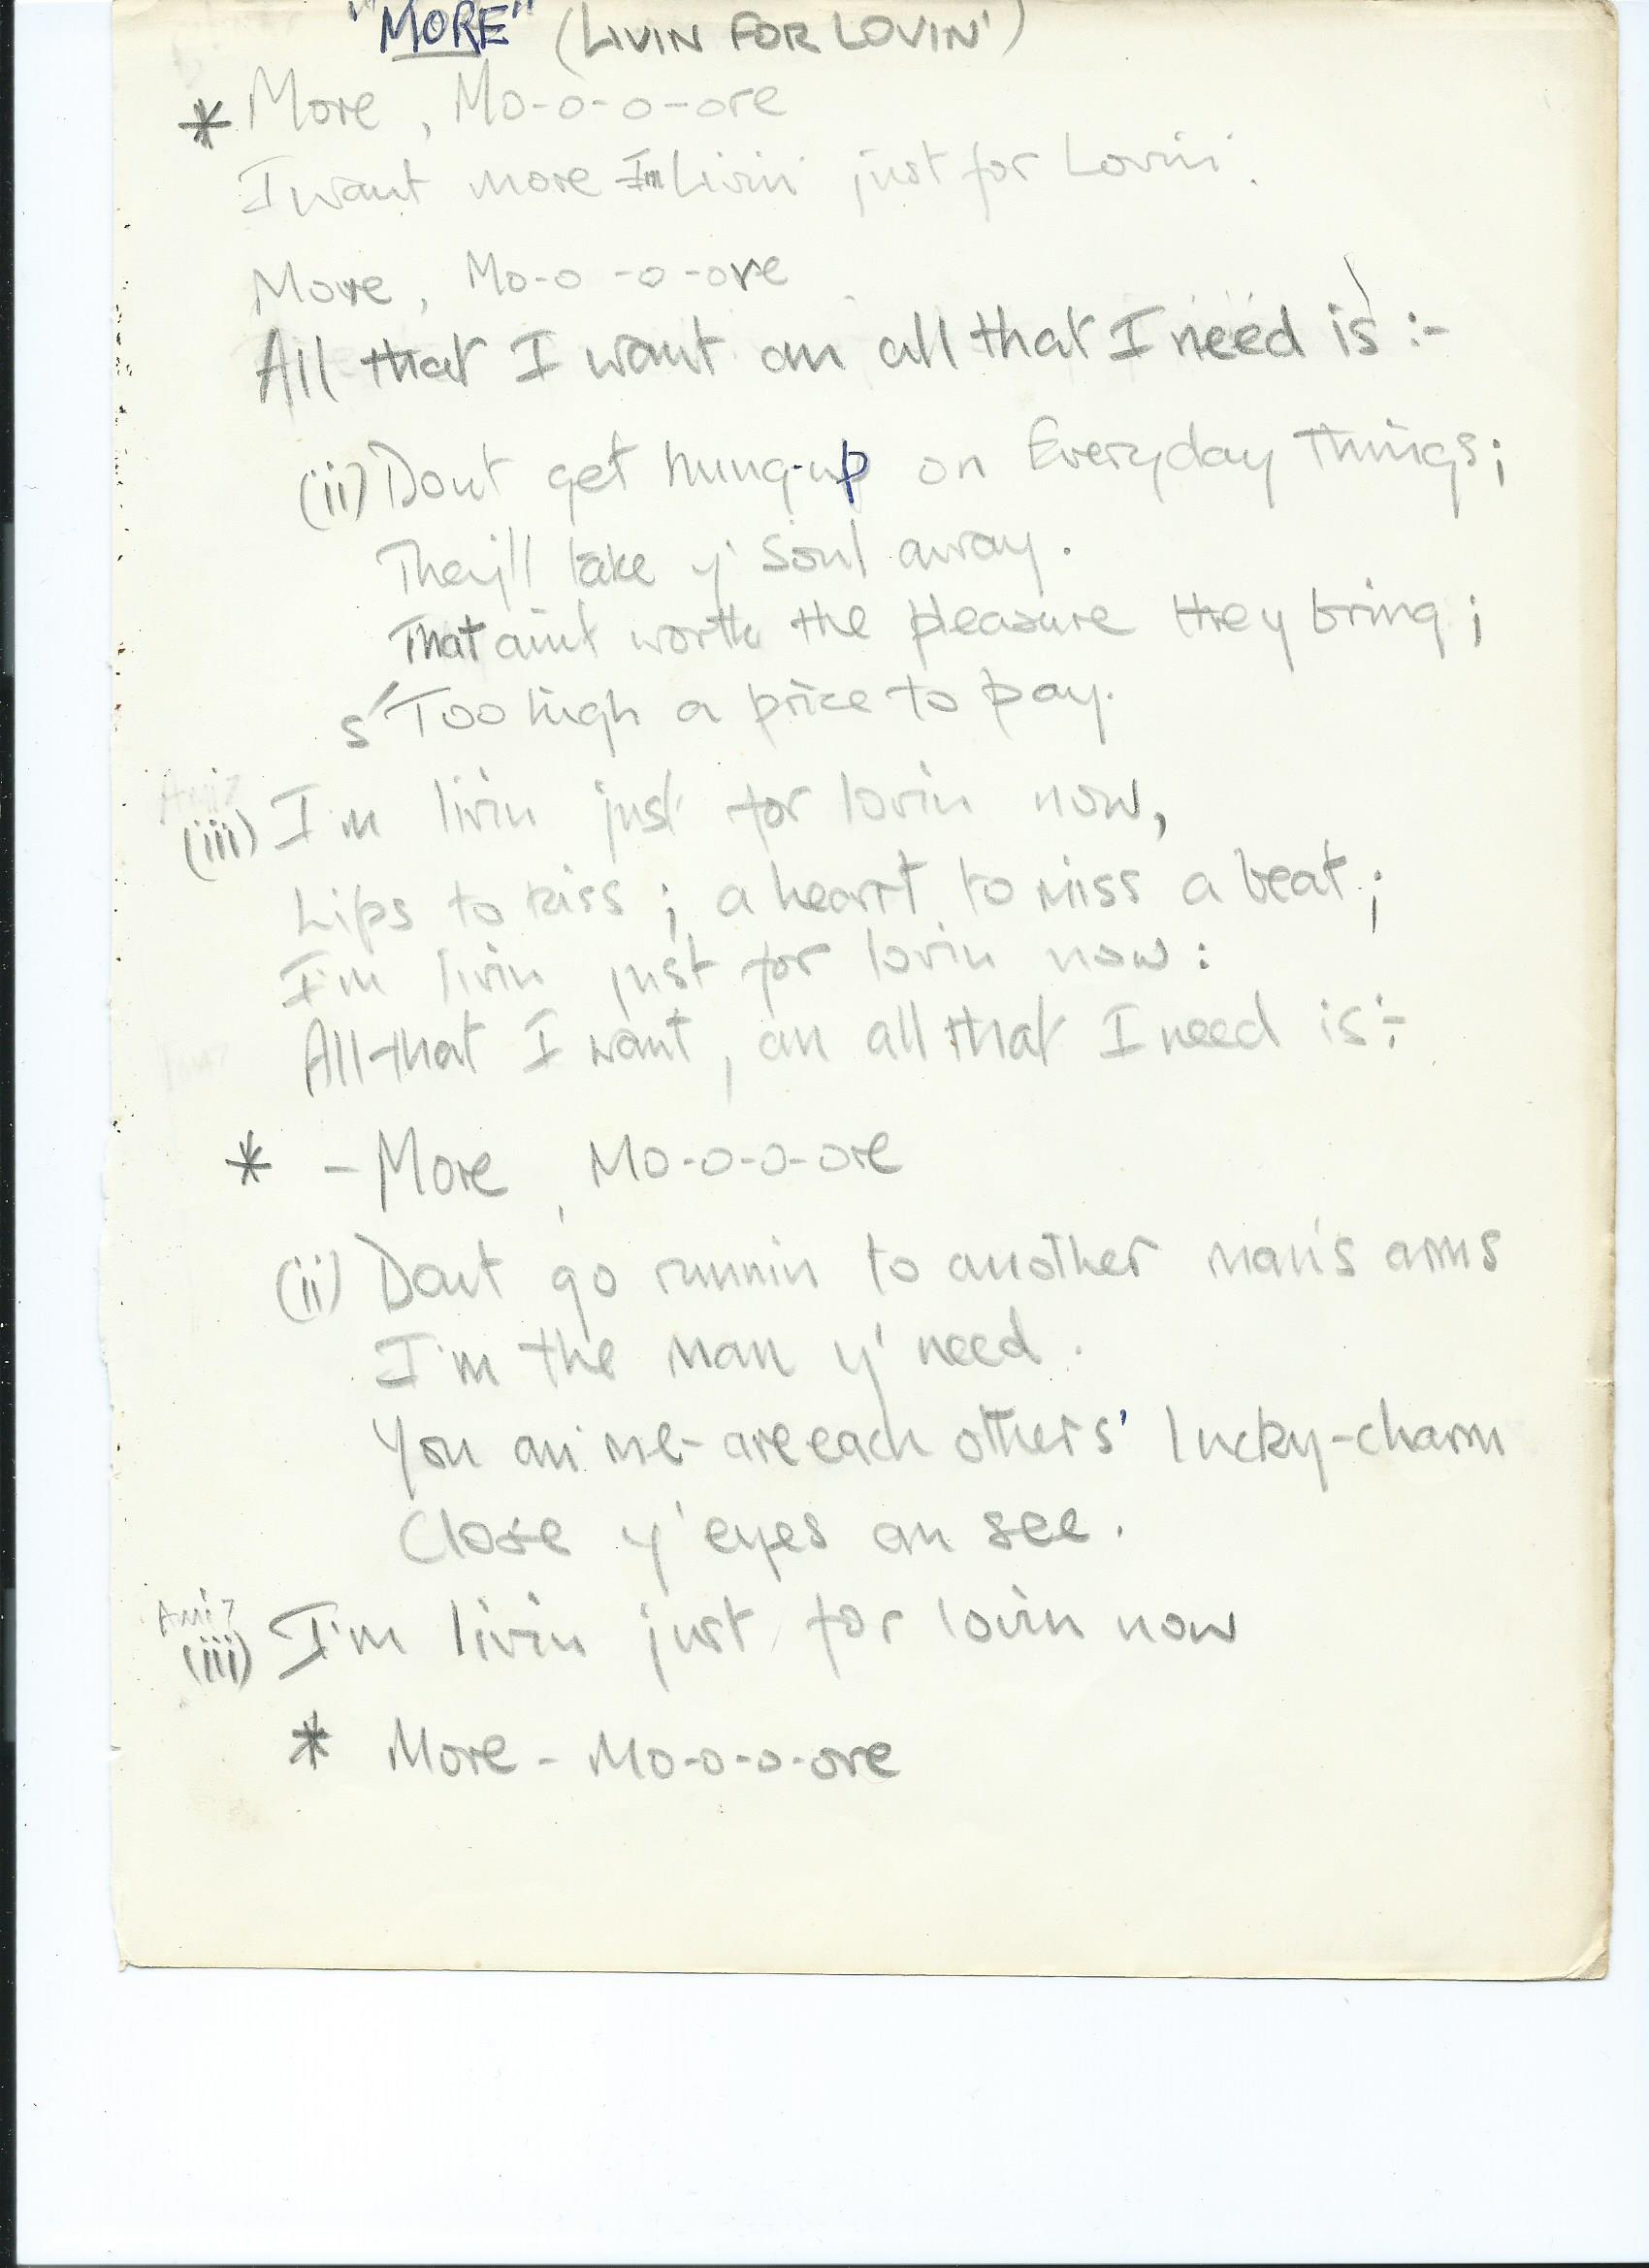 "MORE" (LIVIN FOR LOVIN')
* More, Mo-o-o-ore
I want more I'm Livin' just for Lovin'.
More, Mo-o-o-ore
All that I want an all that I need is :-
(ii) Dont get hung-up on Everyday Things;
They'll take y' soul away.
That aint worth the pleasure they bring;
s' Too high a price to pay.
(iii) I'm livin just for lovin now,
Lips to kiss; a heart to miss a beat;
I'm livin just for lovin now:
All that I want, an all that I need is:-
* - More, Mo-o-o-ore
(ii) Dont go runnin to another man's arms
I'm the man y' need.
You an' me - are each others' lucky-charm
Close y' eyes an see.
Ami7
(iii) I'm livin just for lovin now
* More - Mo-o-o-ore